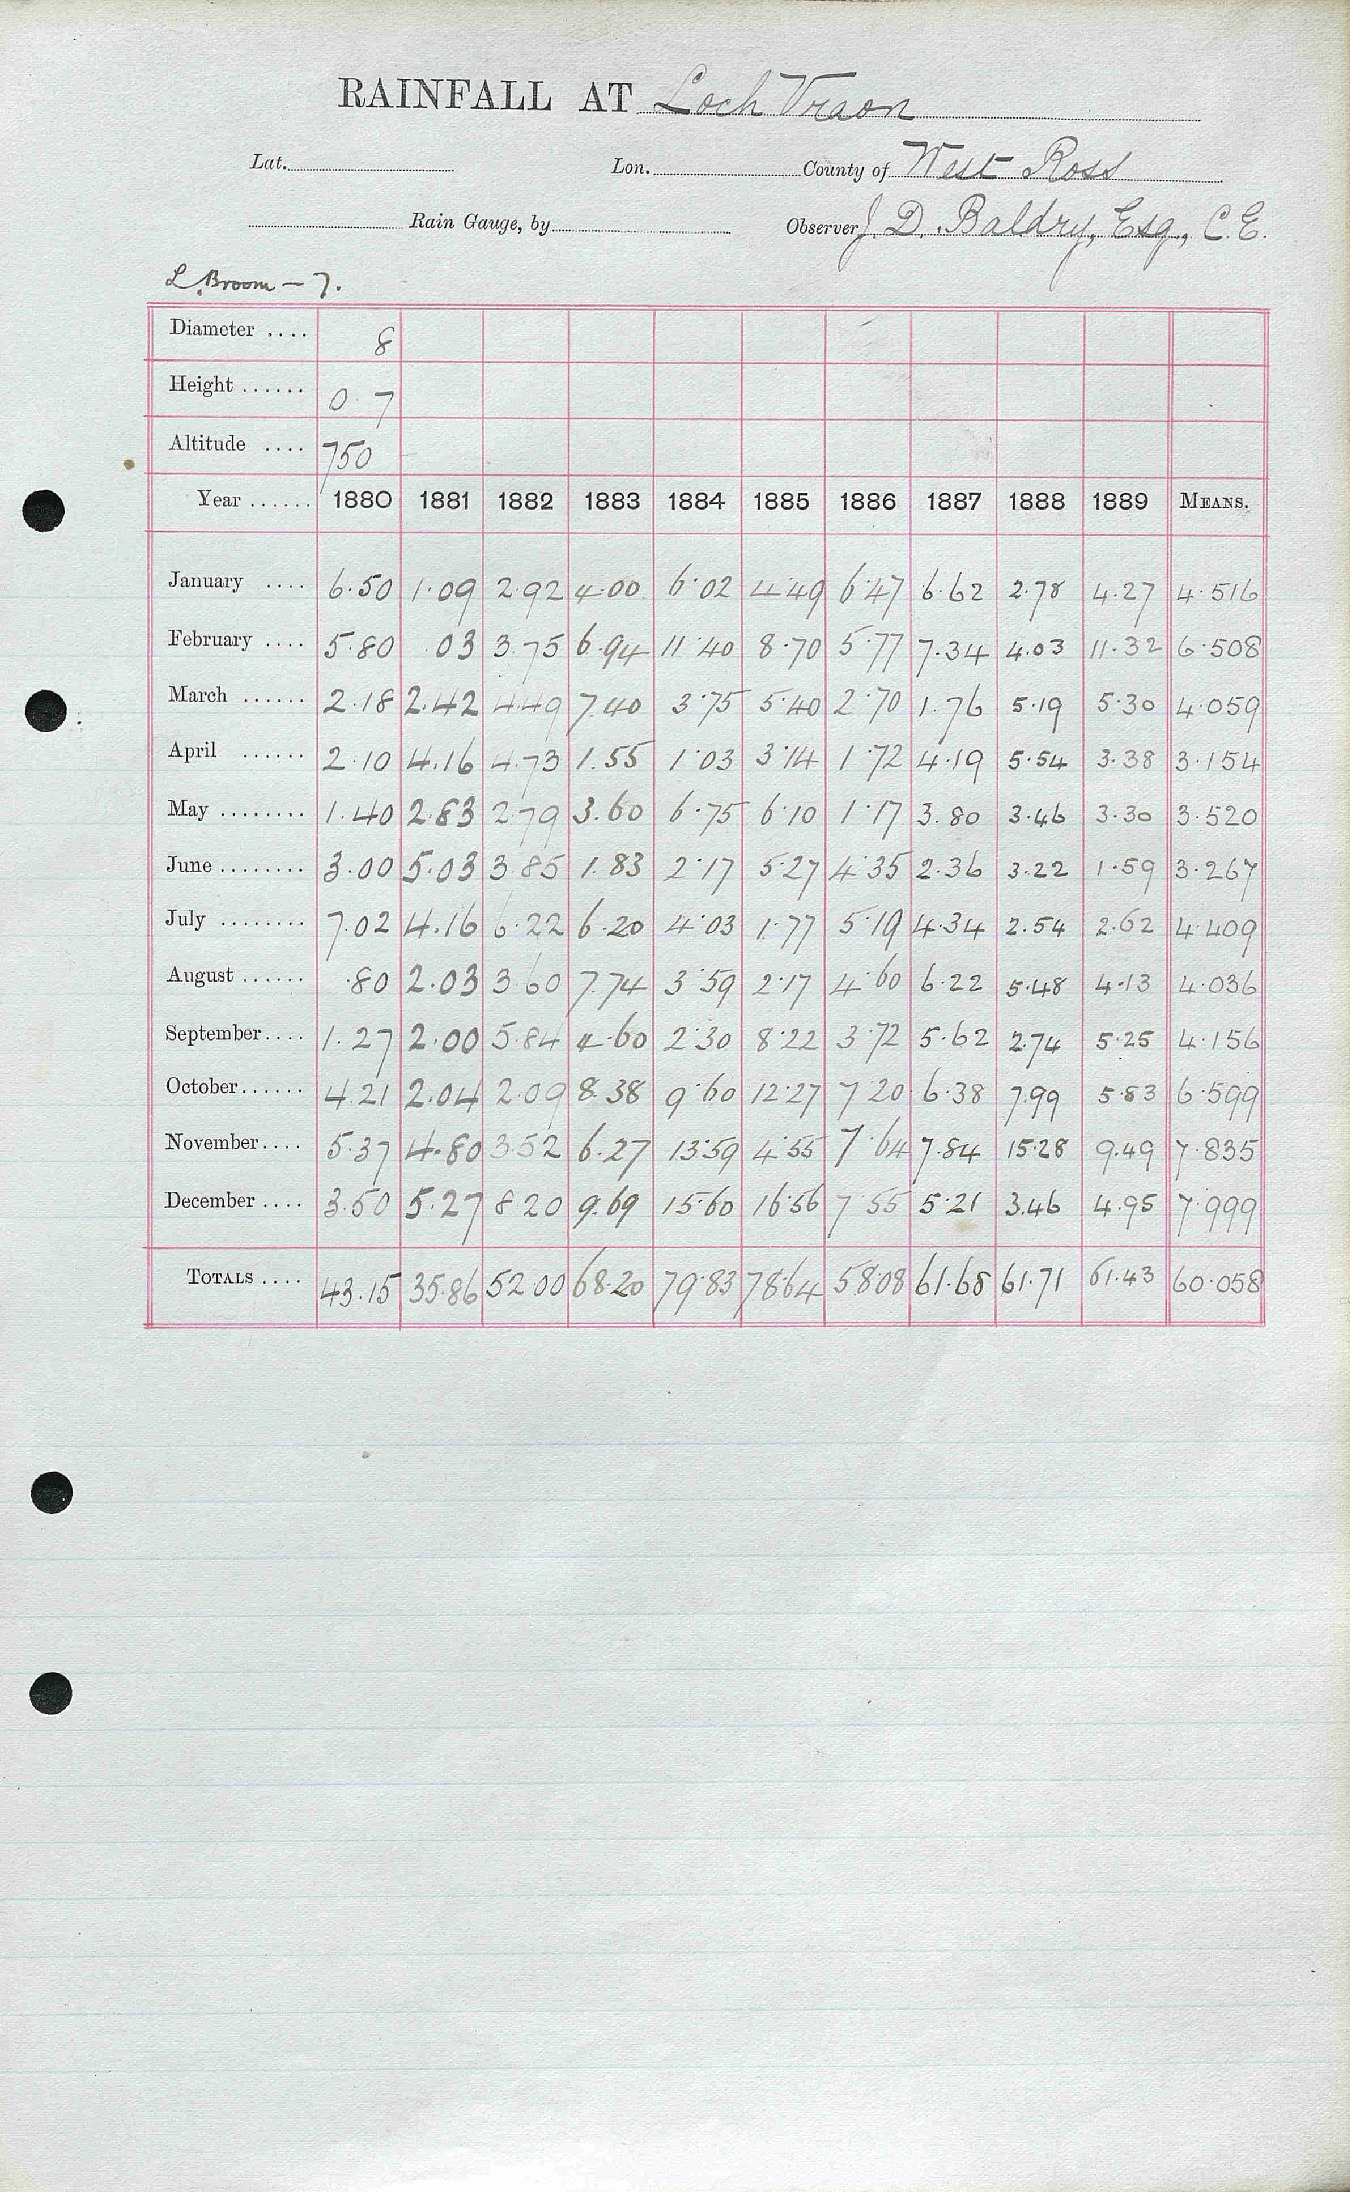 RAINFALL AT Loch Vraon
Lat. Lon. County of West Ross
Rain Gauge, by Observer J. D. Baldry, Esq., C.E.
L. Broom — 7.
Diameter .... 8
Height ...... 0 7
Altitude .... 750
Year ...... 1880 1881 1882 1883 1884 1885 1886 1887 1888 1889 MEANS.
January .... 6.50 1.09 2.92 4.00 6.02 4.49 6.47 6.62 2.78 4.27 4.516
February .... 5.80 .03 3.75 6.94 11.40 8.70 5.77 7.34 4.03 11.32 6.508
March ...... 2.18 2.42 4.49 7.40 3.75 5.40 2.70 1.76 5.19 5.30 4.059
April ...... 2.10 4.16 4.73 1.55 1.03 3.14 1.72 4.19 5.54 3.38 3.154
May ........ 1.40 2.83 2.79 3.60 6.75 6.10 1.17 3.80 3.46 3.30 3.520
June ........ 3.00 5.03 3.85 1.83 2.17 5.27 4.35 2.36 3.22 1.59 3.267
July ........ 7.02 4.16 6.22 6.20 4.03 1.77 5.19 4.34 2.54 2.62 4.409
August ...... .80 2.03 3.60 7.74 3.59 2.17 4.60 6.22 5.48 4.13 4.036
September.... 1.27 2.00 5.84 4.60 2.30 8.22 3.72 5.62 2.74 5.25 4.156
October...... 4.21 2.04 2.09 8.38 9.60 12.27 7.20 6.38 7.99 5.83 6.599
November.... 5.37 4.80 3.52 6.27 13.59 4.55 7.64 7.84 15.28 9.49 7.835
December .... 3.50 5.27 8.20 9.69 15.60 16.56 7.55 5.21 3.46 4.95 7.999
TOTALS .... 43.15 35.86 52.00 68.20 79.83 78.64 58.08 61.68 61.71 61.43 60.058